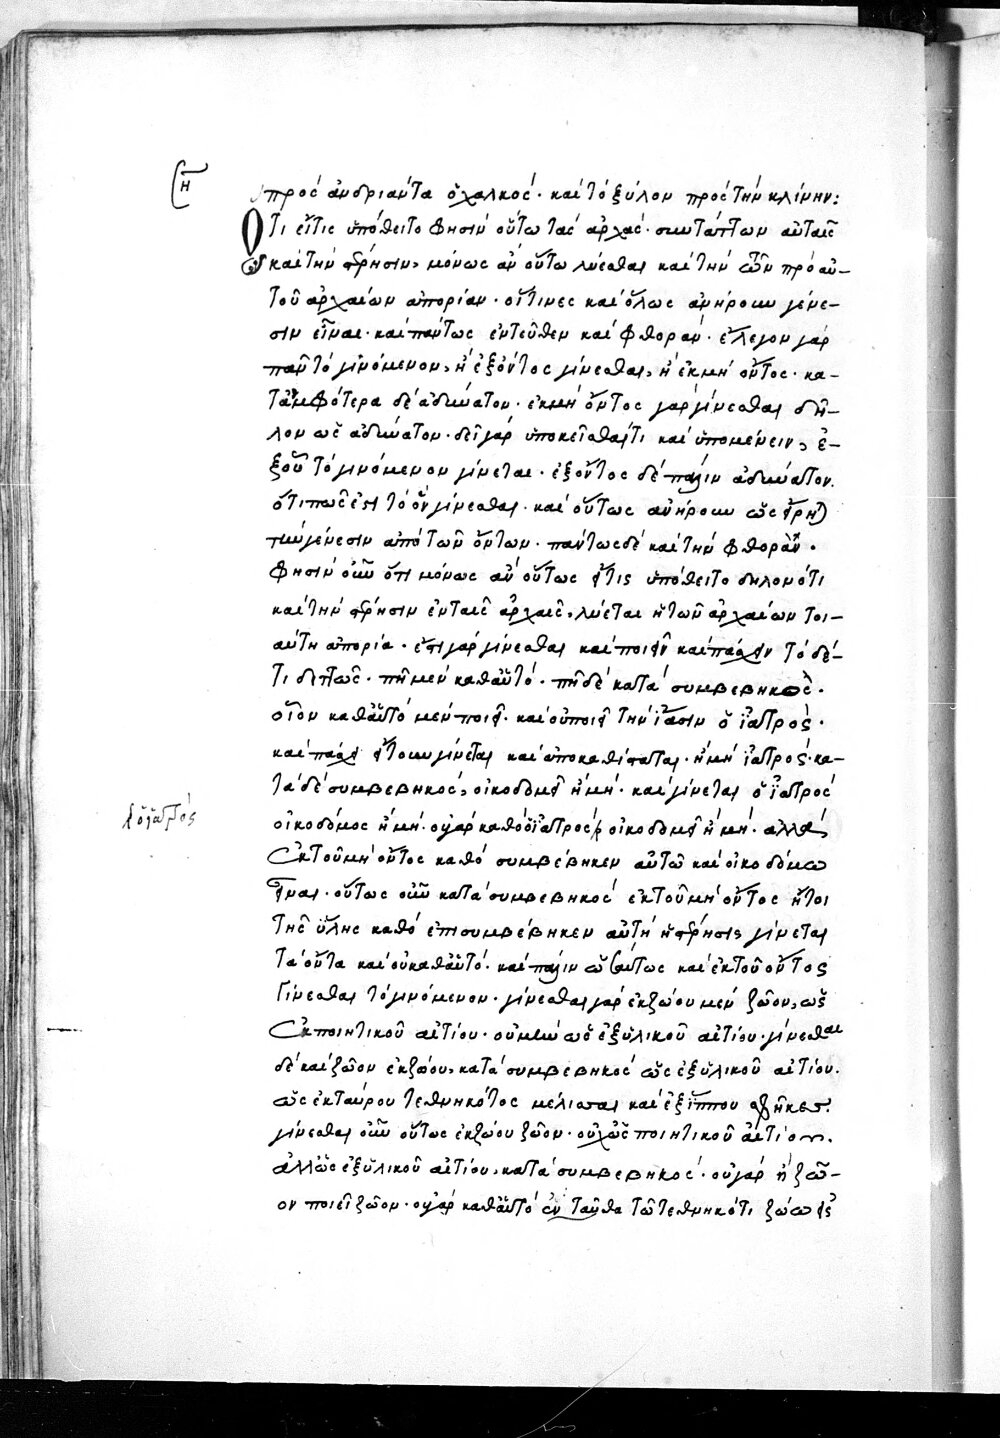 η
πρὸς ἀνδριάντα ὁ χαλκός· καὶ τὸ ξύλον πρὸς τὴν κλίνην:
Ὅτι εἴ τις ὑπόθειτο φησὶν οὕτω τὰς ἀρχάς· συντάττων αὐταῖς
καὶ τὴν στέρησιν, μόνως ἂν οὕτω λύεσθαι καὶ τὴν τῶν πρὸ αὐ-
τοῦ ἀρχαίων ἀπορίαν· οἵτινες καὶ ὅλως ἀνήρουν γένε-
σιν εἶναι· καὶ πάντως ἐντεῦθεν καὶ φθοράν· ἔλεγον γὰρ
πᾶν τὸ γινόμενον, ἢ ἐξ ὄντος γίνεσθαι, ἢ ἐκ μὴ ὄντος· κα-
τάμφότερα δὲ ἀδύνατον· ἐκ μὴ ὄντος γὰρ γίνεσθαι δῆ-
λον ὡς ἀδύνατον· δεῖ γάρ ὑποκεῖσθαί τι καὶ ὑπομένειν, ἐ-
ξ οὗ τὸ γινόμενον γίνεται· ἐξ ὄντος δὲ πάλιν ἀδύνατον.
ὅτι πως ἐστὶ τὸ ὂν γίνεσθαι· καὶ οὕτως ἀνήρουν ὡς εἴρηται
τὴν γένεσιν ἀπὸ τῶν ὄντων· πάντως δὲ καὶ τὴν φθοράν·
φησὶν οὖν ὅτι μόνως ἂν οὕτως εἴ τις ὑπόθειτο δηλονότι
καὶ τὴν στέρησιν ἐν ταῖς ἀρχαῖς, λύεται ἡ τῶν ἀρχαίων τοι-
αύτη ἀπορία· ἔστι γὰρ γίνεσθαι καὶ ποιεῖν καὶ πάσχειν τὸ δέ-
τι διττῶς· πῇ μὲν καθαὑτό· πῇ δὲ κατὰ συμβεβηκός·
οἷον καθαὑτὸ μὲν ποιεῖ· καὶ οὐ ποιεῖ τὴν ἴασιν ὁ ἰατρός·
καὶ πάσχει ἤτουν γίνεται καὶ ἀποκαθίσταται· ἢ μὴ ἰατρός· κα-
τὰ δὲ συμβεβηκός, οἰκοδομεῖ ἢ μή· καὶ γίνεται ὁ ἰατρὸς
οἰκοδόμος ἢ μή· οὐ γὰρ καθὸ ὁ ἰατρός οἰκοδομεῖ ἢ μή· ἀλλὰ
ὁ ἰατρός
ἐκ τοῦ μὴ ὄντος καθὸ συμβέβηκεν αὐτῶ καὶ οἰκοδόμω
εἶναι· οὕτως οὖν κατὰ συμβεβηκὸς ἐκ τοῦ μὴ ὄντος ἤτοι
τῆς ὕλης καθὸ ἐπισυμβέβηκεν αὐτῇ ἡ στέρησις γίνεται
τὰ ὄντα καὶ οὐ καθαὑτό· καὶ πάλιν ὡσαύτως καὶ ἐκ τοῦ ὄντος
γίνεσθαι τὸ γινόμενον· γίνεσθαι γὰρ ἐκ ζώου μὲν ζῶον, ὡς
ἐκ ποιητικοῦ αἰτίου· οὐ μὴν ὡς ἐξ ὑλικοῦ αἰτίου· γίνεσθαι
δὲ καὶ ζῶον ἐκ ζώου, κατὰ συμβεβηκὸς ὡς ἐξ ὑλικοῦ αἰτίου.
ὡς ἐκ ταύρου τεθνηκότος μέλισσαι καὶ ἐξ ἵππου σφῆκες.
γίνεσθαι οὖν οὕτως ἐκ ζώου ζῶον· οὐχ ὡς ποιητικοῦ αἰτίου.
ἀλλ' ὡς ἐξ ὑλικοῦ αἰτίου, κατὰ συμβεβηκός· οὐ γὰρ ἢ ζῶ-
ον ποιεῖ ζῶον· οὐ γὰρ καθαὑτὸ ἐνταῦθα τῶ τεθνηκότι ζώω εἰ